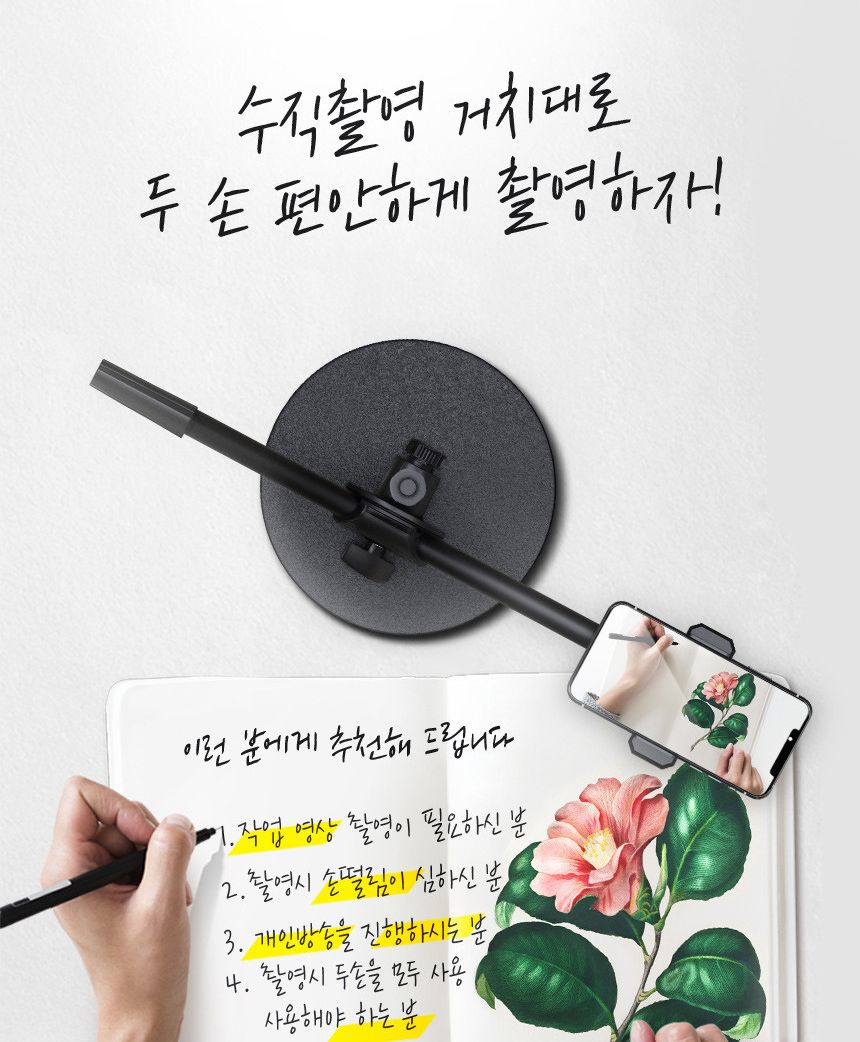 수직촬영 거치대로
두 손 편안하게 촬영하자!
이런 분에게 추천해 드립니다
1. 작업 영상 촬영이 필요하신 분
2. 촬영시 손떨림이 심하신 분
3. 개인방송을 진행하시는 분
4. 촬영시 두손을 모두 사용
사용해야 하는 분